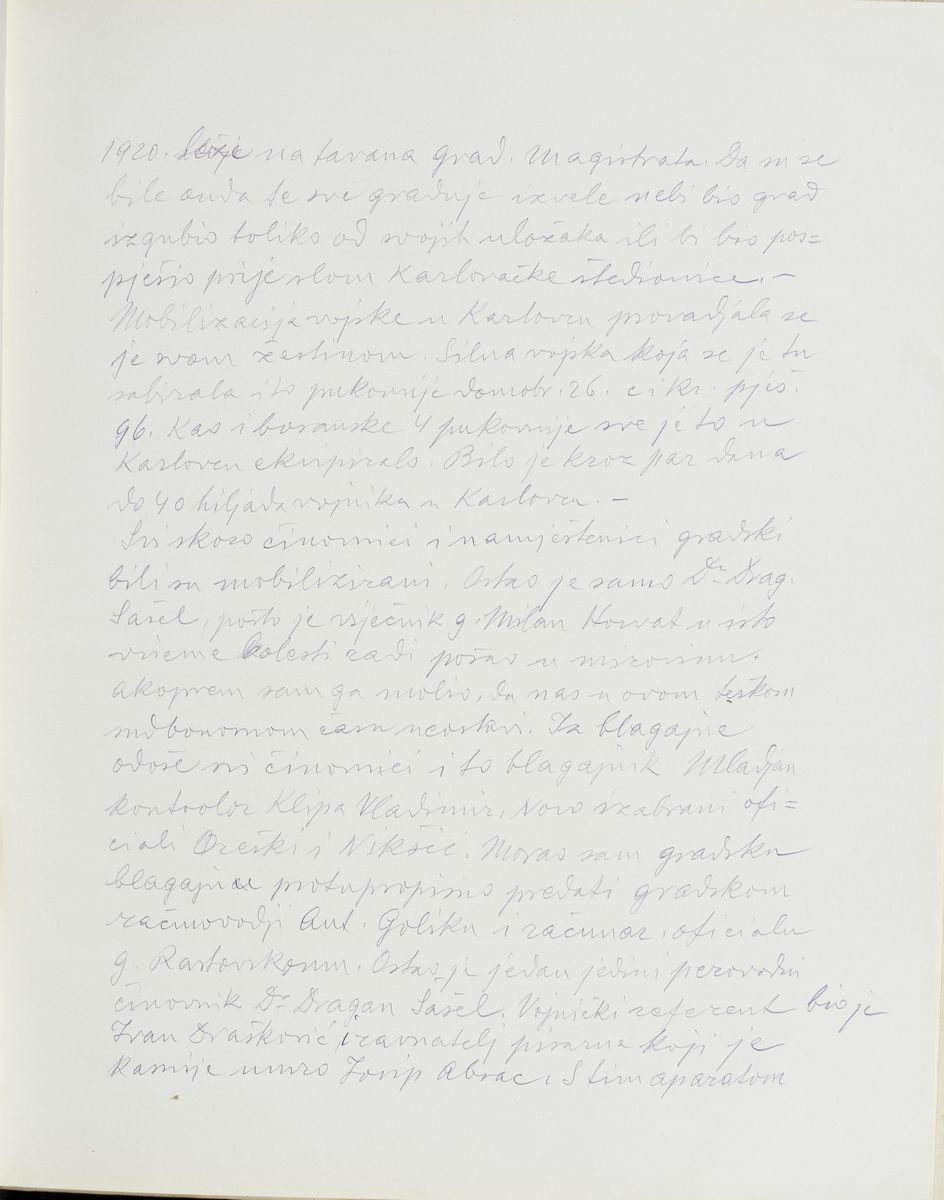 1920. leže na tavana grad. Magistrata. Da su se
bile onda te sve gradnje izvele nebi bio grad
izgubio toliko od svojih uložaka ili bi bio pos=
pješio prije slom Karlovačke štedionice. –
Mobilizacija vojske u Karlovcu provadjala se
je svom žestinom. Silna vojska koja se je tu
sabirala i to pukovnije domobr. 26. c i kr. pješ.
96. Kao i bosanske 4 pukovnije sve je to u
Karlovcu ekvipiralo. Bilo je kroz par dana
do 40 hiljada vojnika u Karlovcu. –
Svi skoro činovnici i namještenici gradski
bili su mobilizirani. Ostao je samo Dr. Drag.
Šašel, pošto je vječnik g. Milan Horvat u isto
vrieme bolesti radi pošao u mirovinu.
Akoprem sam ga molio, da nas u ovom teškom
sudbonomom času neostavi. Iz blagajne
odoše svi činovnici i to blagajnik Mladjan
kontrolor Klipa Vladimir, Novo izabrani ofi=
ciali Oreški i Nikšić. Morao sam gradsku
blagajnu protupropisno predati gradskom
računovodji Ant. Golsku i računar. oficialu
g. Rastovskomu. Ostao je jedan jedini perovodni
činovnik Dr. Dragan Šašel. Vojnički referent bio je
Ivan Drašković, i ravnatelj pisarne koji je
kasnije umro Josip Absac. S tim aparatom